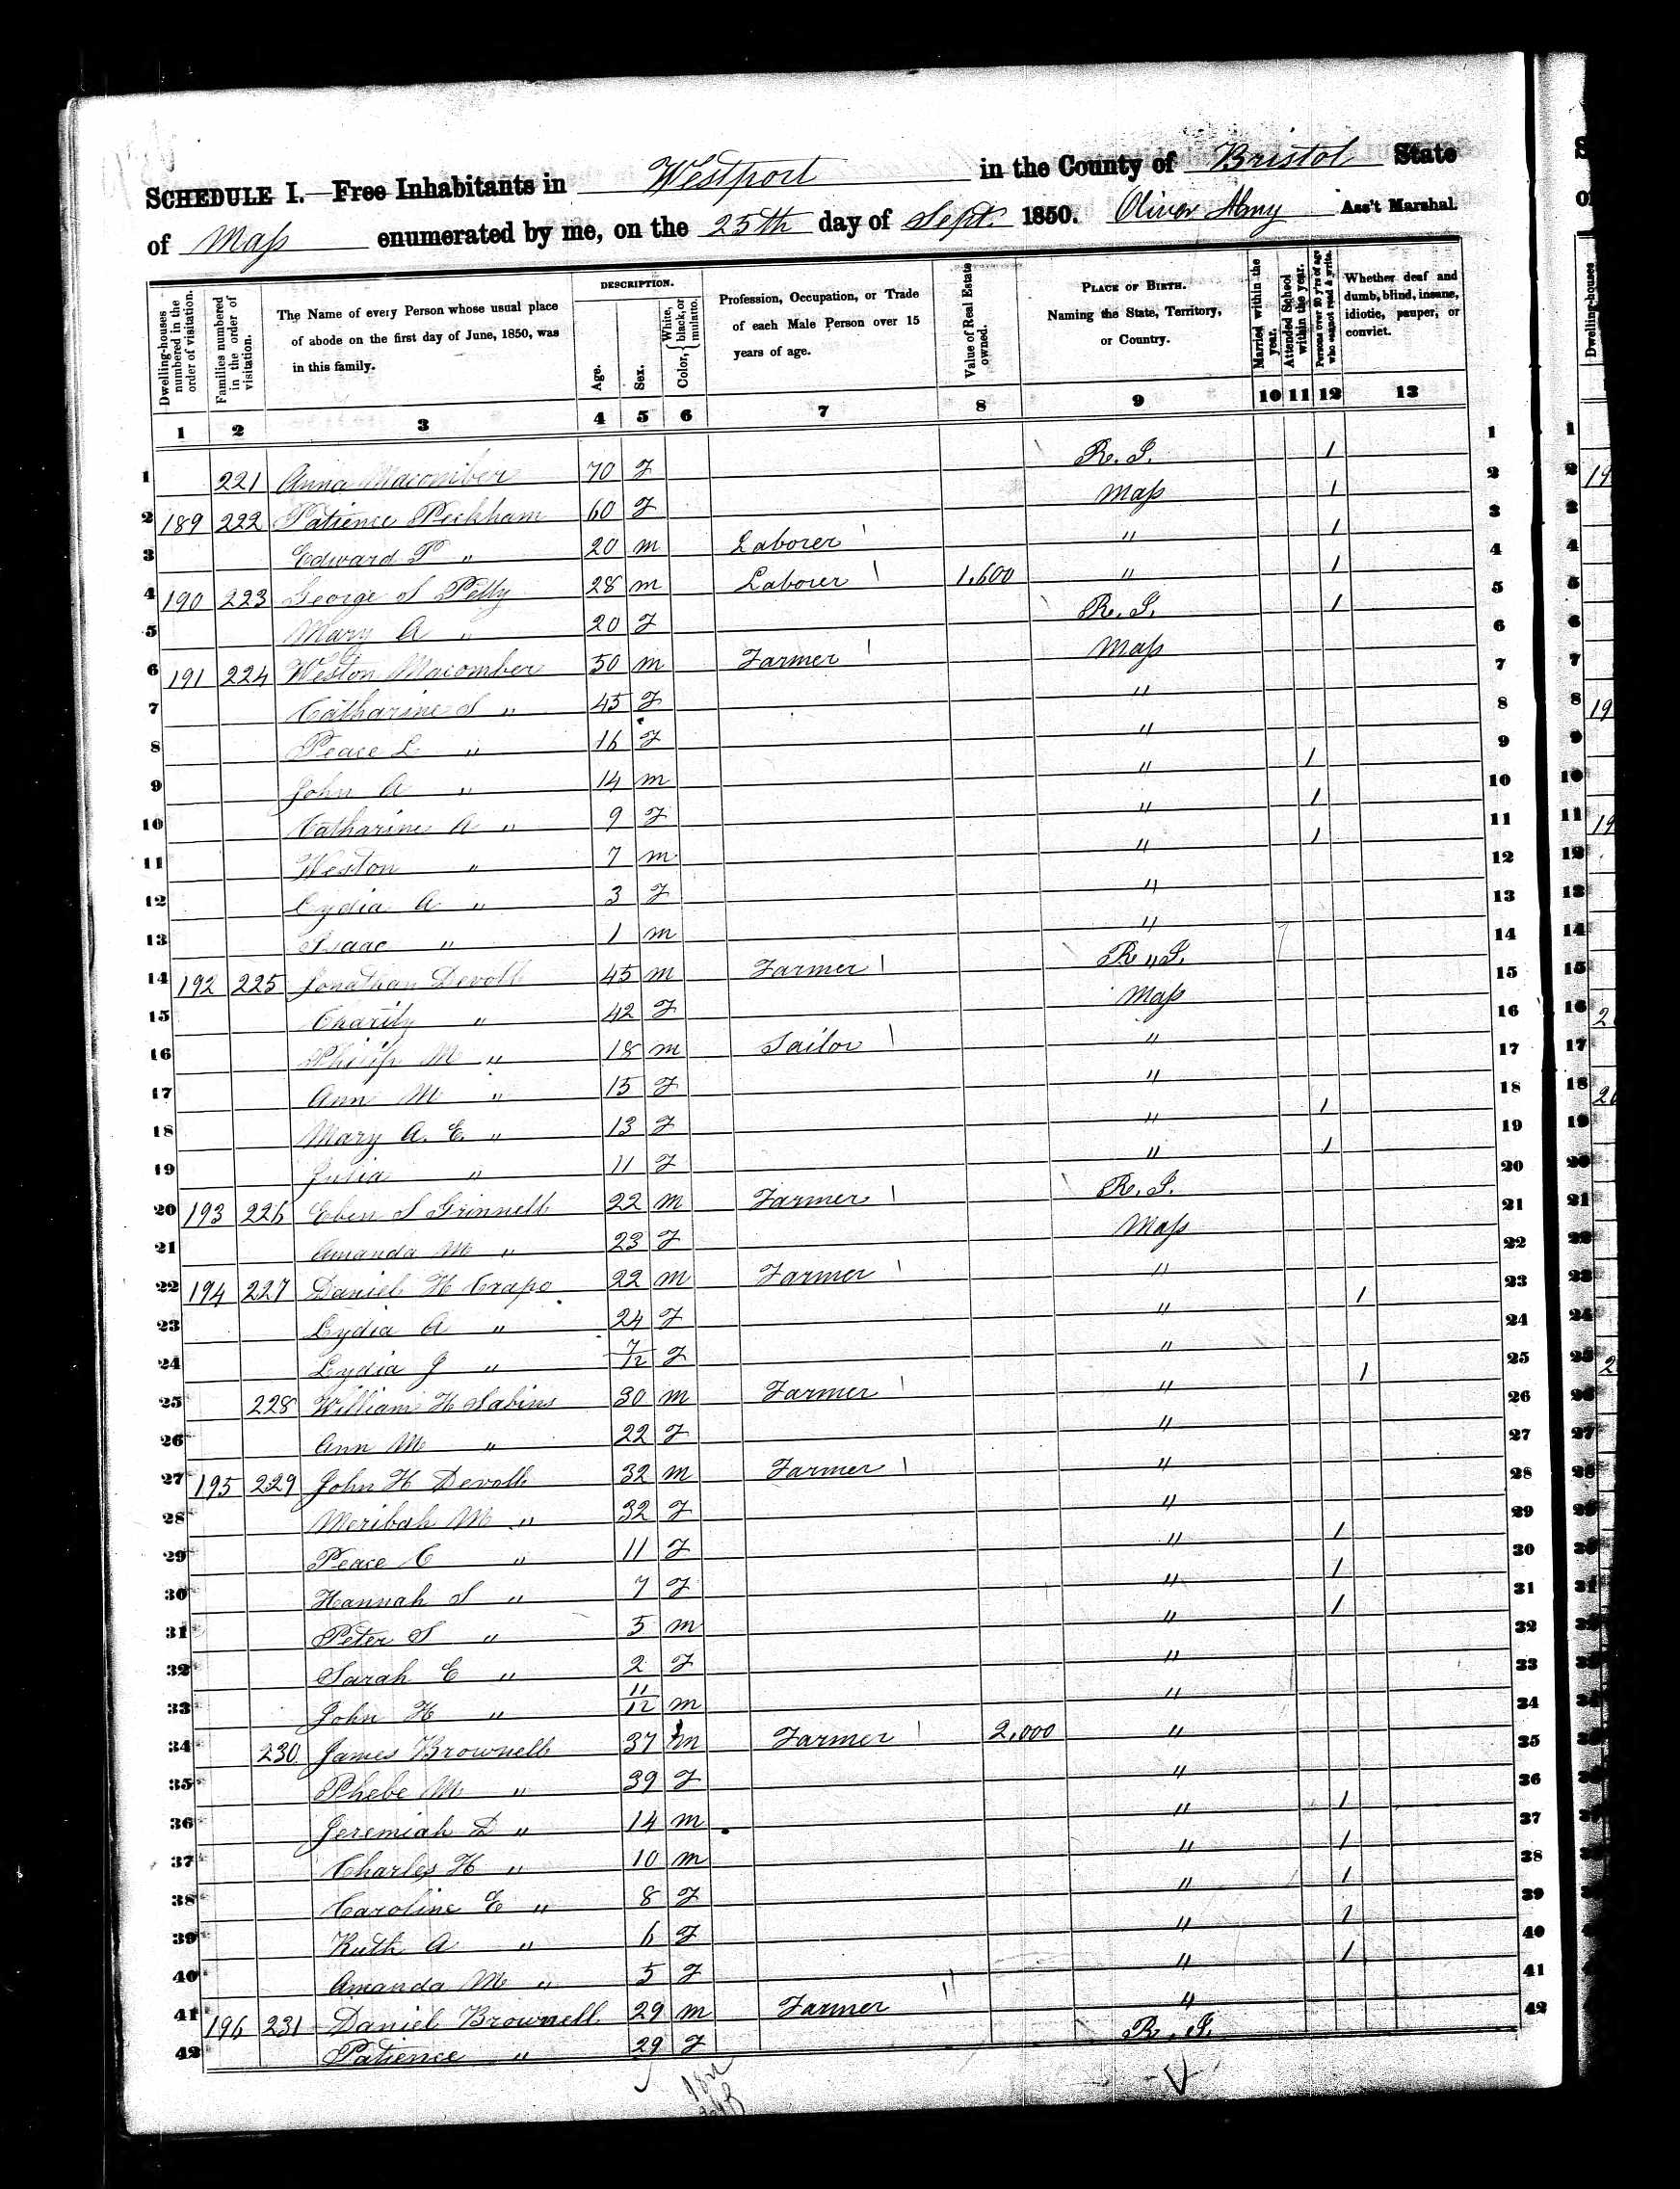 SCHEDULE I. Free Inhabitants in Westport in the County of Bristol State
of Mass enumerated by me, on the 25th day of Sept. 1850. Oliver Almy Ass't Marshal.
Dwelling-houses numbered in the order of visitation.
Families numbered in the order of visitation.
The Name of every Person whose usual place of abode on the first day of June, 1850, was in this family.
DESCRIPTION.
Age.
Sex.
Color, { White, black, or mulatto.
Profession, Occupation, or Trade of each Male Person over 15 years of age.
Value of Real Estate owned.
PLACE OF BIRTH. Naming the State, Territory, or Country.
Married within the year.
Attended School within the year.
Persons over 20 y'rs of age who cannot read & write.
Whether deaf and dumb, blind, insane, idiotic, pauper, or convict.
1 2 3 4 5 6 7 8 9 10 11 12 13
1 221 Anna Macomber 70 F R. I. 1 1
2 189 222 Patience Peckham 60 F Mass 1 2
3 Edward P " 20 m Laborer " 1 3
4 190 223 George S Petty 28 m Laborer 1,600 " 1 4
5 Mary A " 20 F R. I. 1 5
6 191 224 Weston Macomber 50 m Farmer Mass 6
7 Catharine S " 45 F " 7
8 Peace L " 16 F " 8
9 John A " 14 m " 1 9
10 Catharine A " 9 F " 1 10
11 Weston " 7 m " 1 11
12 Lydia A " 3 F " 12
13 Isaac " 1 m " 13
14 192 225 Jonathan Devoll 45 m Farmer R. I. 14
15 Charity " 42 F Mass 15
16 Philip M " 18 m Sailor " 16
17 Ann M " 15 F " 17
18 Mary A. E. " 13 F " 1 18
19 Julia " 11 F " 1 19
20 193 226 Eben S Grinnell 22 m Farmer R. I. 20
21 Amanda M " 23 F Mass 21
22 194 227 Daniel H Crapo 22 m Farmer " 22
23 Lydia A " 24 F " 1 23
24 Lydia J " 7/12 F " 24
25 228 William H Sabins 30 m Farmer " 1 25
26 Ann M " 22 F " 26
27 195 229 John H Devoll 32 m Farmer " 27
28 Meribah M " 32 F " 28
29 Peace C " 11 F " 1 29
30 Hannah S " 7 F " 1 30
31 Peter S " 5 m " 1 31
32 Sarah E " 2 F " 32
33 John H " 11/12 m " 33
34 230 James Brownell 37 m Farmer 2,000 " 34
35 Phebe M " 39 F " 35
36 Jeremiah D " 14 m " 1 36
37 Charles H " 10 m " 1 37
38 Caroline E " 8 F " 1 38
39 Ruth A " 6 F " 1 39
40 Amanda M " 5 F " 1 40
41 196 231 Daniel Brownell 29 m Farmer " 41
42 Patience " 29 F R. I. 42